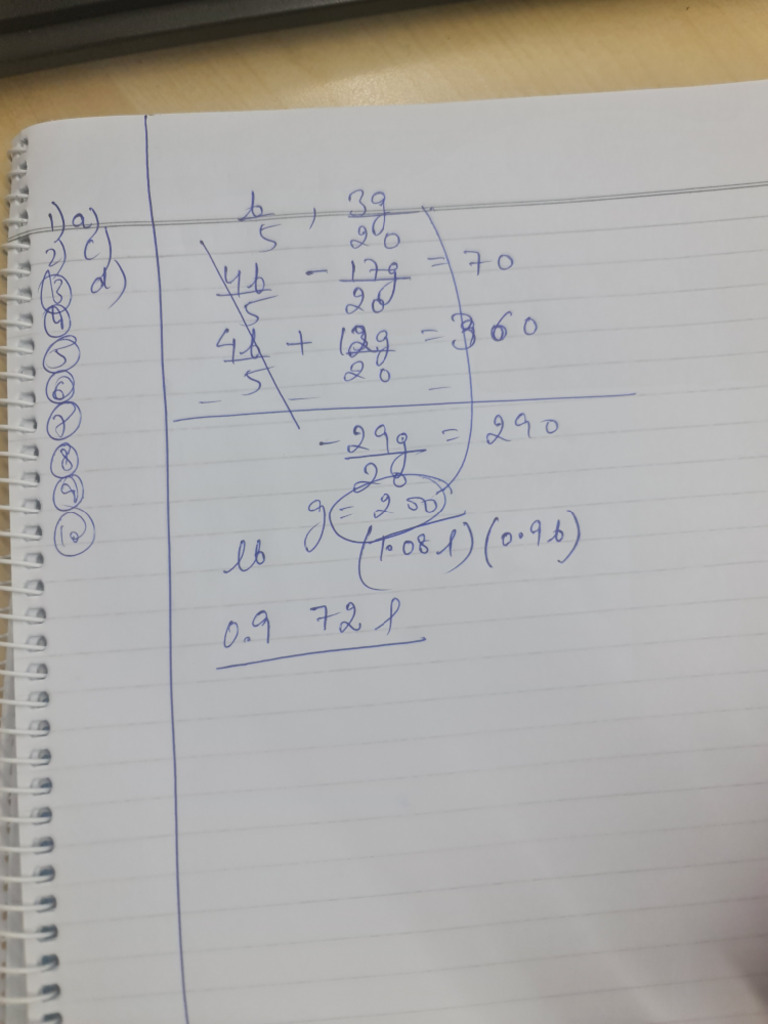 1) a)
2) c)
3 d)
4
5
6
7
8
9
10
b/5 , 3g/20
4b/5 - 17g/20 = 70
4b/5 + 12g/20 = 360
- - -
-29g/20 = 290
g = 200
lb (1.08l)(0.9b)
0.9 72 l